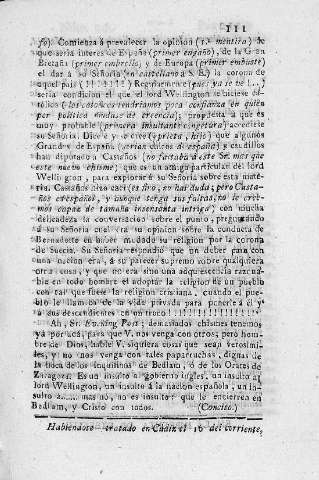 111
so). Comienza á prevalecer la opinion (1.ª mentira) de
que seria interes de España (primer engaño), de la Gran
Bretaña (primer embrollo) y de Europa (primer embuste)
el dar á su Señoría (en castellano á S. E.) la corona de
aquel pais (!!!!!!!) Regularmente (pues ya se ve!...)
seria condicion el que el lord Wellington se hiciese ca-
tólico (los colonos tendriamos poca confianza en quien
por política mudase de creencia); propuesta á que es
muy probable (primera insultante congetura) accediese
su Señoría. Dice é y de cree (prieta, hijo) que algunos
Grandes de España (serian chicos de españa) y caudillos
han diputado a Castaños (no faltaba á este Sr. mas que
este nuevo chisme) que es un amigo particular del lord
Wellington, para explorar á su Señoría sobre esta mate-
ria. Castaños hizo caer (es firo, no hai duda; pero Casta-
ños es español, y aunque tenga sus faltas, no le cree-
mos capaz de tamaña insensata intriga) con mucha
delicadeza la conversacion sobre el punto, preguntando
á su Señoría cual era su opinion sobre la conducta de
Bernadotte en haber mudado su religion por la corona
de Suecia. Su Señoría respondió que un deber para con
una nacion era, á su parecer supremo sobre qualquiera
otra cosa, y que no era sino una adquiescencia razona-
ble en todo hombre el adoptar la religion de un pueblo
con tal que fuese la religion cristiana, cuando el pue-
blo le llamaba de la vida privada para ponerle á él y
á sus descendientes en un trono!!!!!!!!!!!!!!!!
Ah, Sr. Evening Post; demasiados chismes tenemos
ya por acá, para que V. nos venga con otros; pero hom-
bre de Dios, hable V. siquiera cosas que sean verosími-
les, y no nos venga con tales paparruchas, dignas de
la boca de los inquilinos de Bedlam, ó de los Orates de
Zaragoza. Es un insulto al gobierno ingles, un insulto á
lord Wellington, un insulto á la nacion española, un in-
sulto á...... mas no, no es insulto: que le encierren en
Bedlam, y Cristo con todos. (Conciso.)
Habiendose tratado en Cádiz el 16 del corriente,